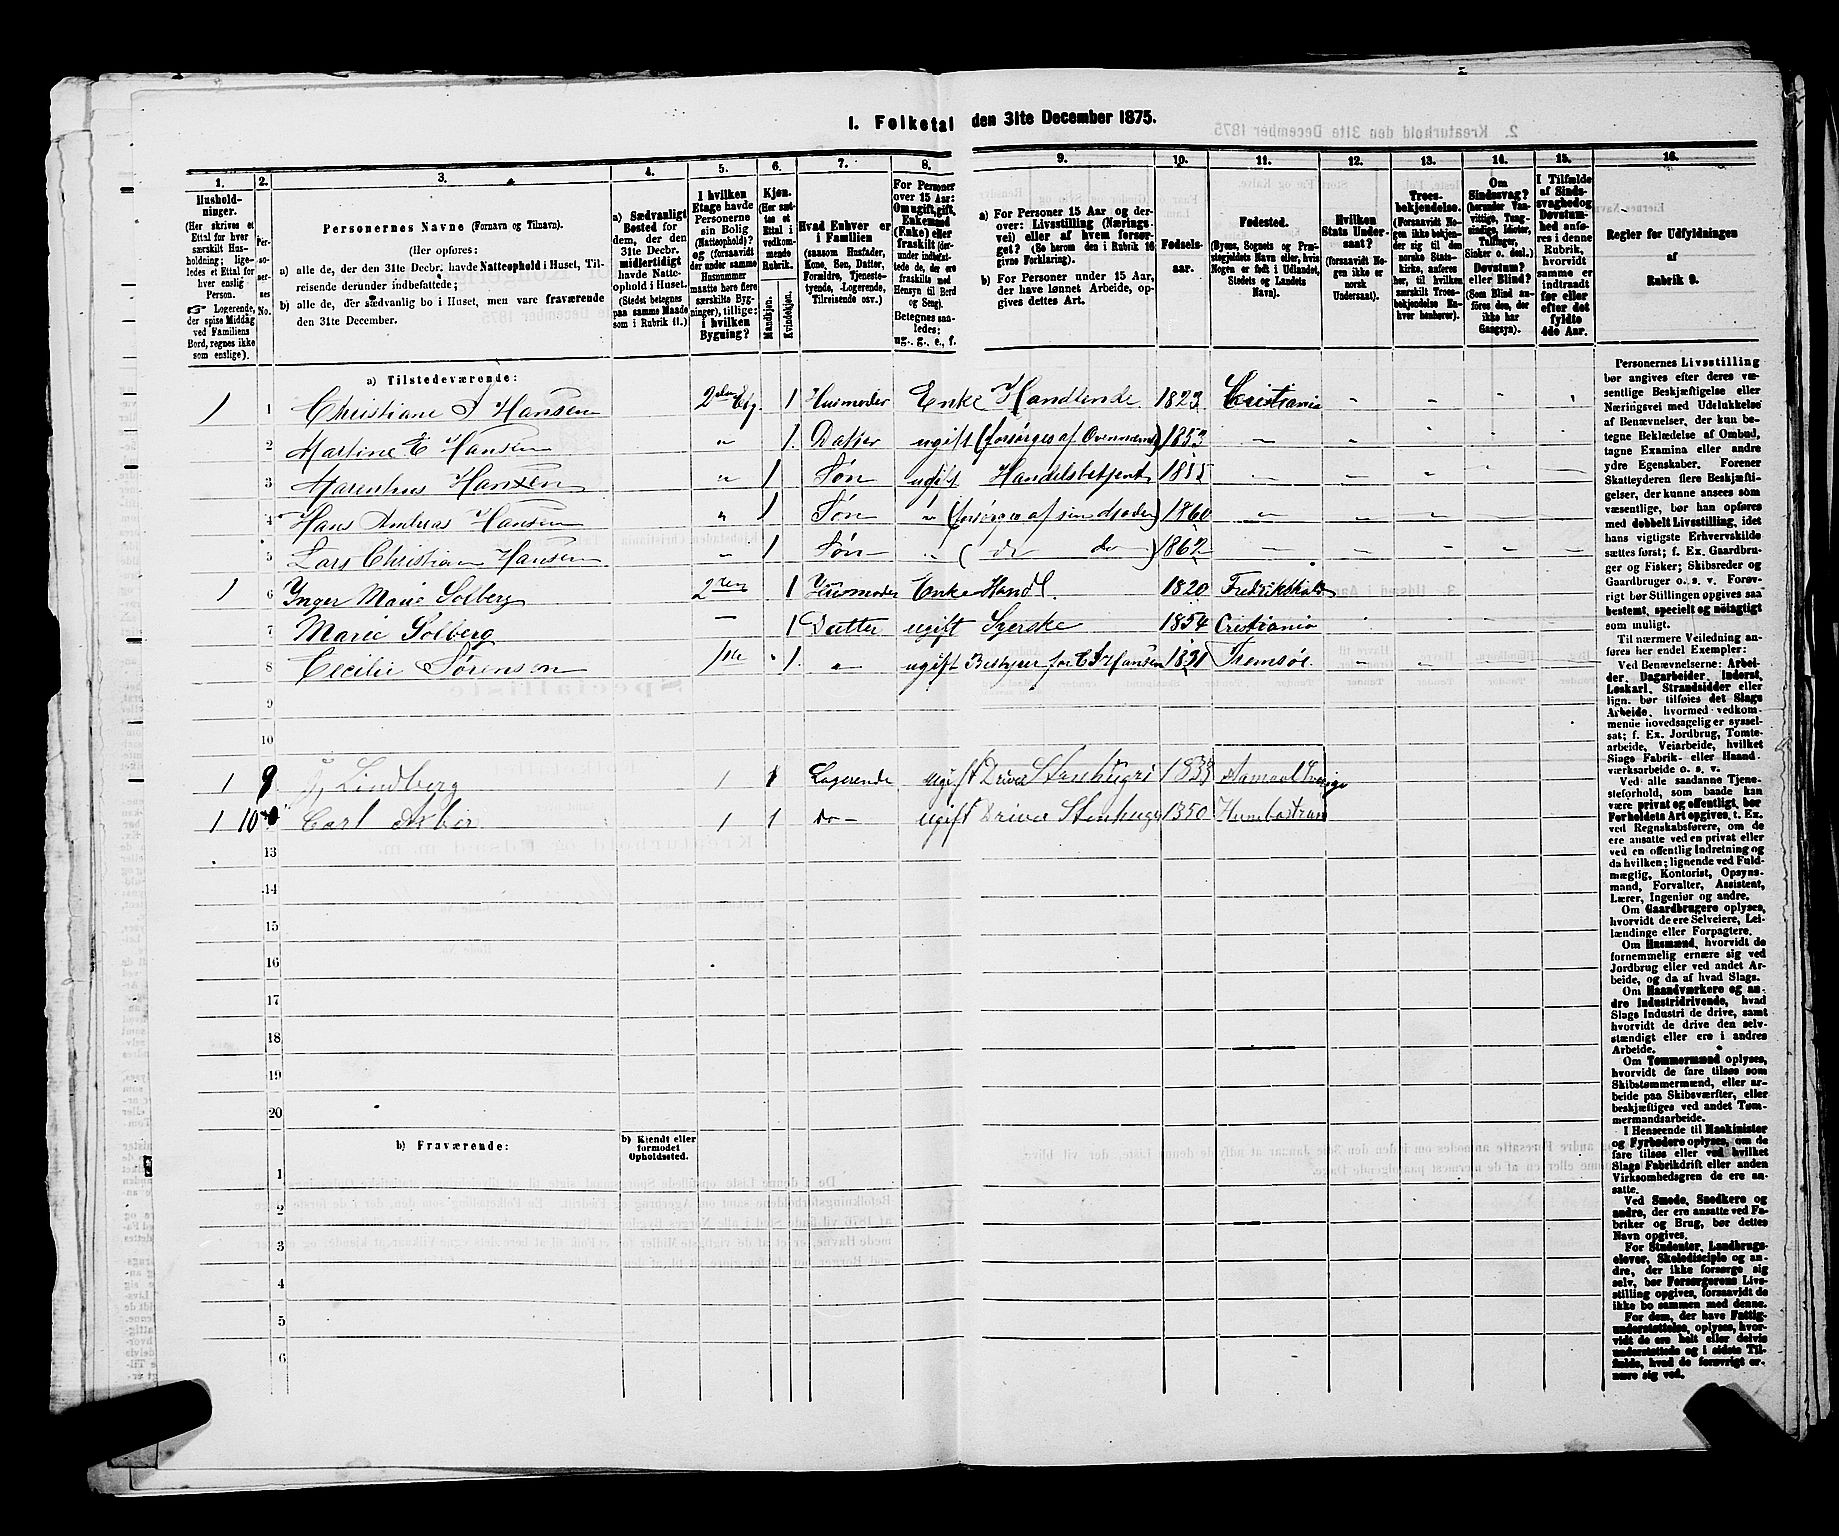 I. Folketal den 31te December 1875.
1. 2. 3. 4. 5. 6. 7. 8. 9. 10. 11. 12. 13. 14. 15. 16.
Husholdninger.
(Her skrives et Ettal for hver særskilt Husholdning; ligeledes et Ettal for hver enslig Person.
Logerende, der spise Middag ved Familiens Bord, regnes ikke som enslige).
Personernes No.
Personernes Navne (Fornavn og Tilnavn).
(Her opføres:
a) alle de, der den 31te Decbr. havde Natteophold i Huset, Tilreisende derunder indbefattede;
b) alle de, der sædvanlig bo i Huset, men vare fraværende den 31te December.
a) Sædvanligt Bosted for dem, der den 31te Decbr. midlertidigt havde Natteophold i Huset. (Stedet betegnes paa samme Maade som i Rubrik 11.)
I hvilken Etage havde Personerne sin Bolig (Natteophold)? og (forsaavidt der under samme Husnummer maatte høre flere særskilte Bygninger), tillige: i hvilken Bygning?
Kjøn. (Her sættes et Ettal i vedkommende Rubrik.
Mandkjøn.
Kvindekjøn.
Hvad Enhver er i Familien (saasom Husfader, Kone, Søn, Datter, Forældre, Tjenestetyende, Logerende, Tilreisende osv.)
For Personer over 15 Aar: Om ugift, gift, Enkemand (Enke) eller fraskilt (derunder indbefattede de, der ere fraskilte med Hensyn til Bord og Seng). Betegnes saaledes: ug., g., e., f.
a) For Personer 15 Aar og derover: Livsstilling (Næringsvei) eller af hvem forsørget? (Se herom den i Rubrik 16 givne Forklaring).
b) For Personer under 15 Aar, der have lønnet Arbeide, opgives dettes Art.
Fødselsaar.
Fødested. (Byens, Sognets og Præstegjeldets Navn eller, hvis Nogen er født i Udlandet, Stedets og Landets Navn).
Hvilken Stats Undersaat? (forsaavidt Nogen ikke er norsk Undersaat).
Troesbekjendelse. (Forsaavidt Nogen ikke bekjender sig til den norske Statskirke, anføres her, til hvilken særskilt Troesbekjendelse Enhver henhører).
Om Sindssvag? (herunder Vanvittige, Tungsindige, Idioter, Tullinger, Sinker o. desl.). Døvstum? eller Blind? (Som Blind anføres den, der ikke har Gangsyn).
I Tilfælde af Sindssvaghed og Døvstumhed anføres i denne Rubrik, hvorvidt samme er indtraadt før eller efter det fyldte 4de Aar.
Regler for Udfyldningen af Rubrik 9.
a) Tilstedeværende:
1 1 Christiane Hansen 2den Etg. 1 Husmoder Enke Handlende 1823 Cristiania
2 Martine E Hansen „ 1 Datter ugift (forsørges af Ovennævnte) 1853 —
3 Marenhus Hansen „ 1 Søn ugift Handelsbetjent 1855 —
4 Hans Andreas Hansen „ 1 Søn „ (forsørges af sin Moder) 1860 —
5 Lars Christian Hansen „ 1 Søn „ (do do) 1862 —
1 6 Inger Marie Solberg 2den 1 Husmoder Enke Handl. 1820 Fredrikshald
7 Marie Solberg — 1 Datter ugift Syerske 1854 Cristiania
8 Cecilie Sørensen 1ste 1 „ ugift Bestyrer for Hansen 1831 Tromsøe
9
10
1 9 Lindberg 1 1 Logerende ugift Driver Stenhugri
1 10 Carl 1 1 Do — ugift Driver Stenhugr 1850
13
14
15
16
17
18
19
20
b) Fraværende:
b) Kjendt eller formodet Opholdssted.
1
2
3
4
5
6
Personernes Livsstilling bør angives efter deres væsentlige Beskjæftigelse eller Næringsvei med Udelukkelse af Benævnelser, der kun betegne Beklædelse af Ombud, tagne Examina eller andre ydre Egenskaber. Forener Skatteyderen flere Beskjæftigelser, der kunne ansees som væsentlige, bør han opføres med dobbelt Livsstilling, idet hans vigtigste Erhvervskilde sættes først; f. Ex. Gaardbruger og Fisker; Skibsreder og Gaardbruger o. s. v. Forøvrigt bør Stillingen opgives saa bestemt, specielt og nøiagtigt som muligt.
Til nærmere Veiledning anføres her endel Exempler:
Ved Benævnelserne: Arbeider, Dagarbeider, Inderst, Løskarl, Strandsidder eller lign. bør tilføies det Slags Arbeide, hvormed vedkommende hovedsagelig er sysselsat; f. Ex. Jordbrug, Tomtearbeide, Veiarbeide, hvilket Slags Fabrik- eller Haandværksarbeide o. s. v.
Ved alle saadanne Tjenesteforhold, som baade kan være privat og offentligt, bør Forholdets Art opgives, t. Ex. ved Regnskabsførere, om de ere ansatte ved en privat eller ved en offentlig Indretning og da hvilken; lignende ved Fuldmægtig, Kontorist, Opsynsmand, Forvalter, Assistent, Lærer, Ingeniør og andre.
Om Gaardbrugere oplyses, hvorvidt de ere Selveiere, Leilændinge eller Forpagtere.
Om Husmænd, hvorvidt de fornemmelig ernære sig ved Jordbrug eller ved andet Arbeide, og da af hvad Slags.
Om Haandværkere og andre Industridrivende, hvad Slags Industri de drive, samt hvorvidt de drive den selvstændigt eller ere i andres Arbeide.
Om Tømmermænd oplyses, hvorvidt de fare tilsøs som Skibstømmermænd, eller arbeide paa Skibsværfter, eller beskjæftiges ved andet Tømmermandsarbeide.
I Henseende til Maskinister og Fyrbødere oplyses, om de fare tilsøs eller ved hvilket Slags Fabrikdrift eller anden Virksomhedsgren de ere ansatte.
Ved Smede, Snedkere og andre, der ere ansatte ved Fabriker og Brug, bør dettes Navn opgives.
For Studenter, Landbrugselever, Skoledisciple og andre, der ikke forsørge sig selv, bør Forsørgerens Livsstilling opgives, forsaavidt de ikke bo sammen med denne.
For dem, der have Fattigunderstøttelse, oplyses, hvorvidt de ere helt eller delvis understøttede og i sidste Tilfælde, hvad de forøvrigt ernære sig ved.